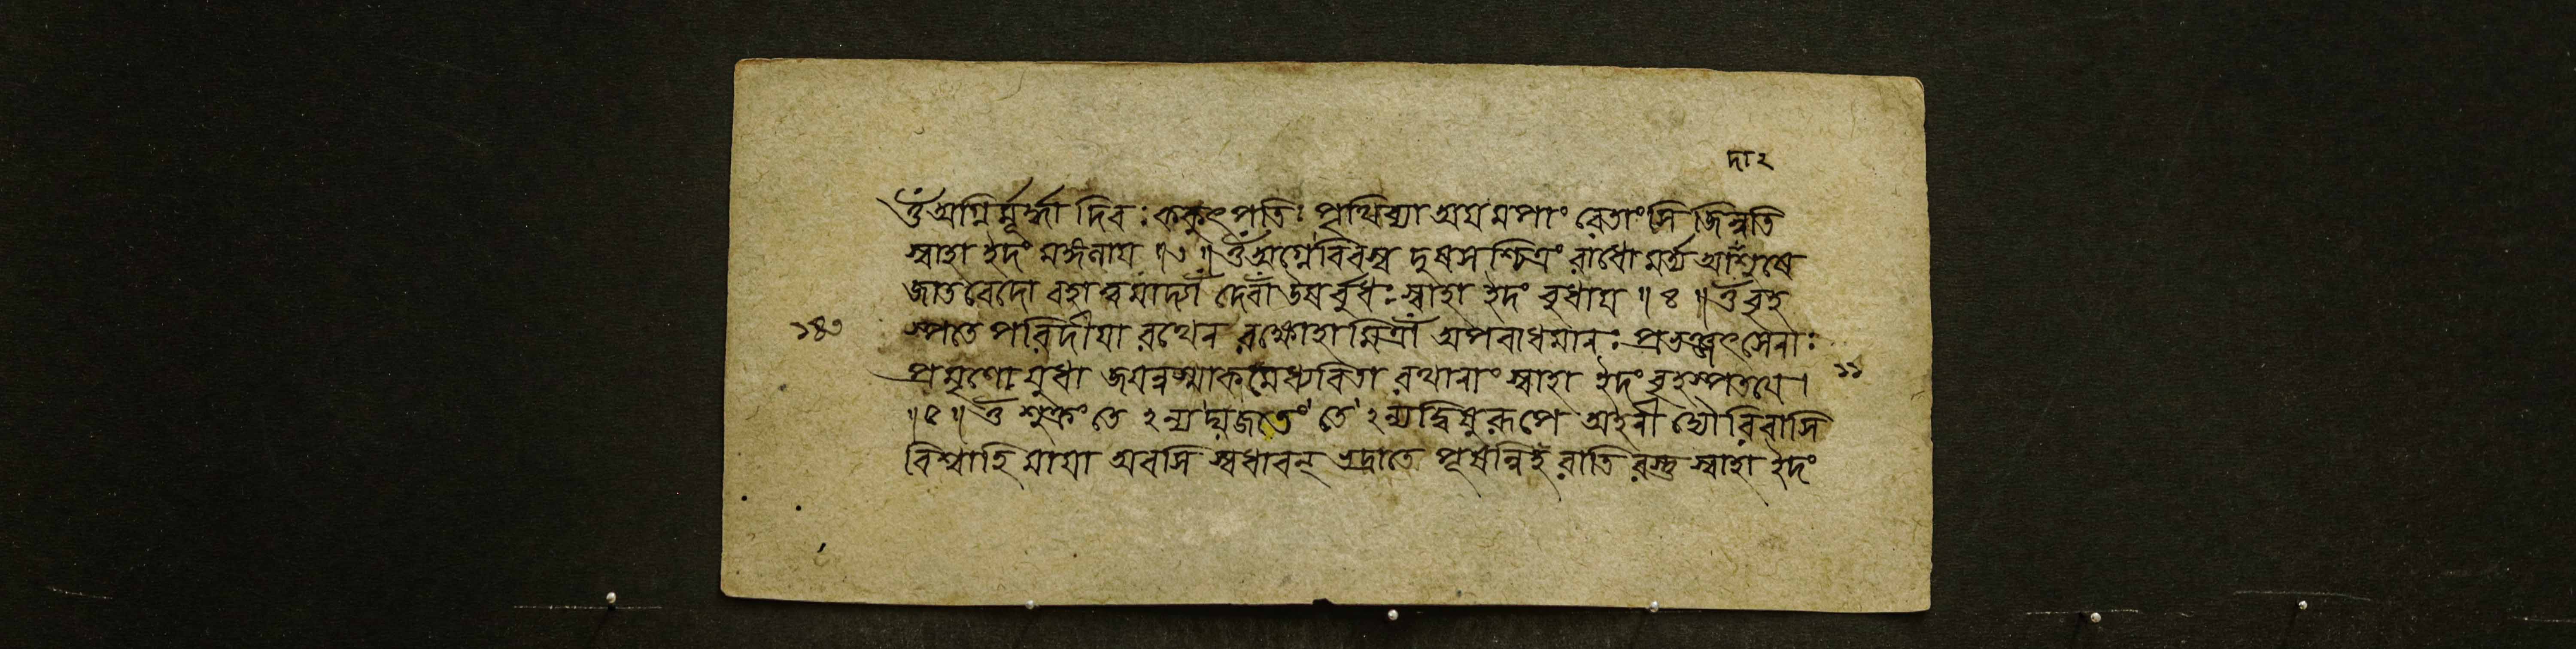 দা২
ওঁ অগ্নির্মূর্দ্ধা দিবঃ ককুৎপতিঃ পৃথিব্যা অয়মপাং ৰেতাংসি জিন্বতি
স্বাহা ইদং মঙ্গলায় ॥৩॥ ওঁ অগ্নে বিবস্ব দুষসশ্চিত্রং ৰাধো মর্ত্য আশুষে
জাতবেদো বহাত্বমাদ্যাঁ দেবাঁ উষর্বুধঃ স্বাহা ইদং বুধায় ॥ ৪ ॥ ওঁ বৃহ
স্পতে পৰিদীয়া ৰথেন ৰক্ষোহামিত্রাঁ অপবাধমানঃ প্রভঞ্জৎসেনাঃ
১৪৩
প্রমৃণো যুধা জয়ন্নস্মাকমেধ্যবিতা ৰথানাং স্বাহা ইদং বৃহস্পতয়ে।
১১
॥৫॥ ওঁ শুক্রং তে ২ন্যদ্যজতং তে ২ন্যদ্বিষুৰূপে অহনী দ্যৌৰিবাসি
বিশ্বাহি মায়া অবসি স্বধাবন্ ভদ্রাতে পূষন্নিহ ৰাতিৰস্তু স্বাহা ইদং